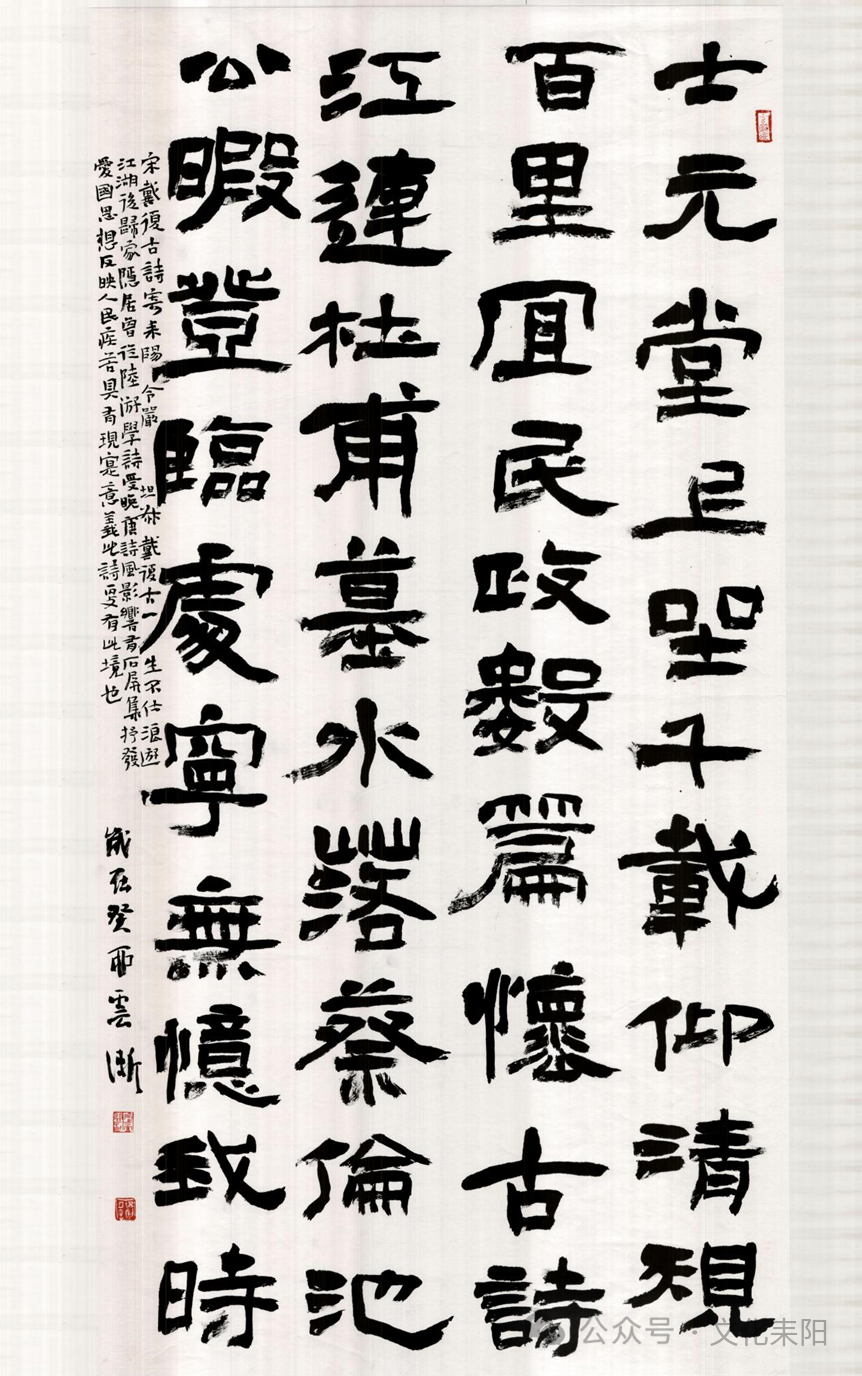 士元堂上坐千載仰清規
百里宜民政數篇懷古詩
江連杜甫墓水落蔡倫池
公暇登臨處寧無憶我時
宋戴復古詩寄耒陽令嚴坦叔戴復古一生不仕浪遊
江湖後歸家隱居曾從陸游學詩受晚唐詩風影響有石屏集抒發
愛國思想反映人民疾苦具有現實意義此詩更有此境也
歲在癸卯雲漸
公众号 · 文化耒阳